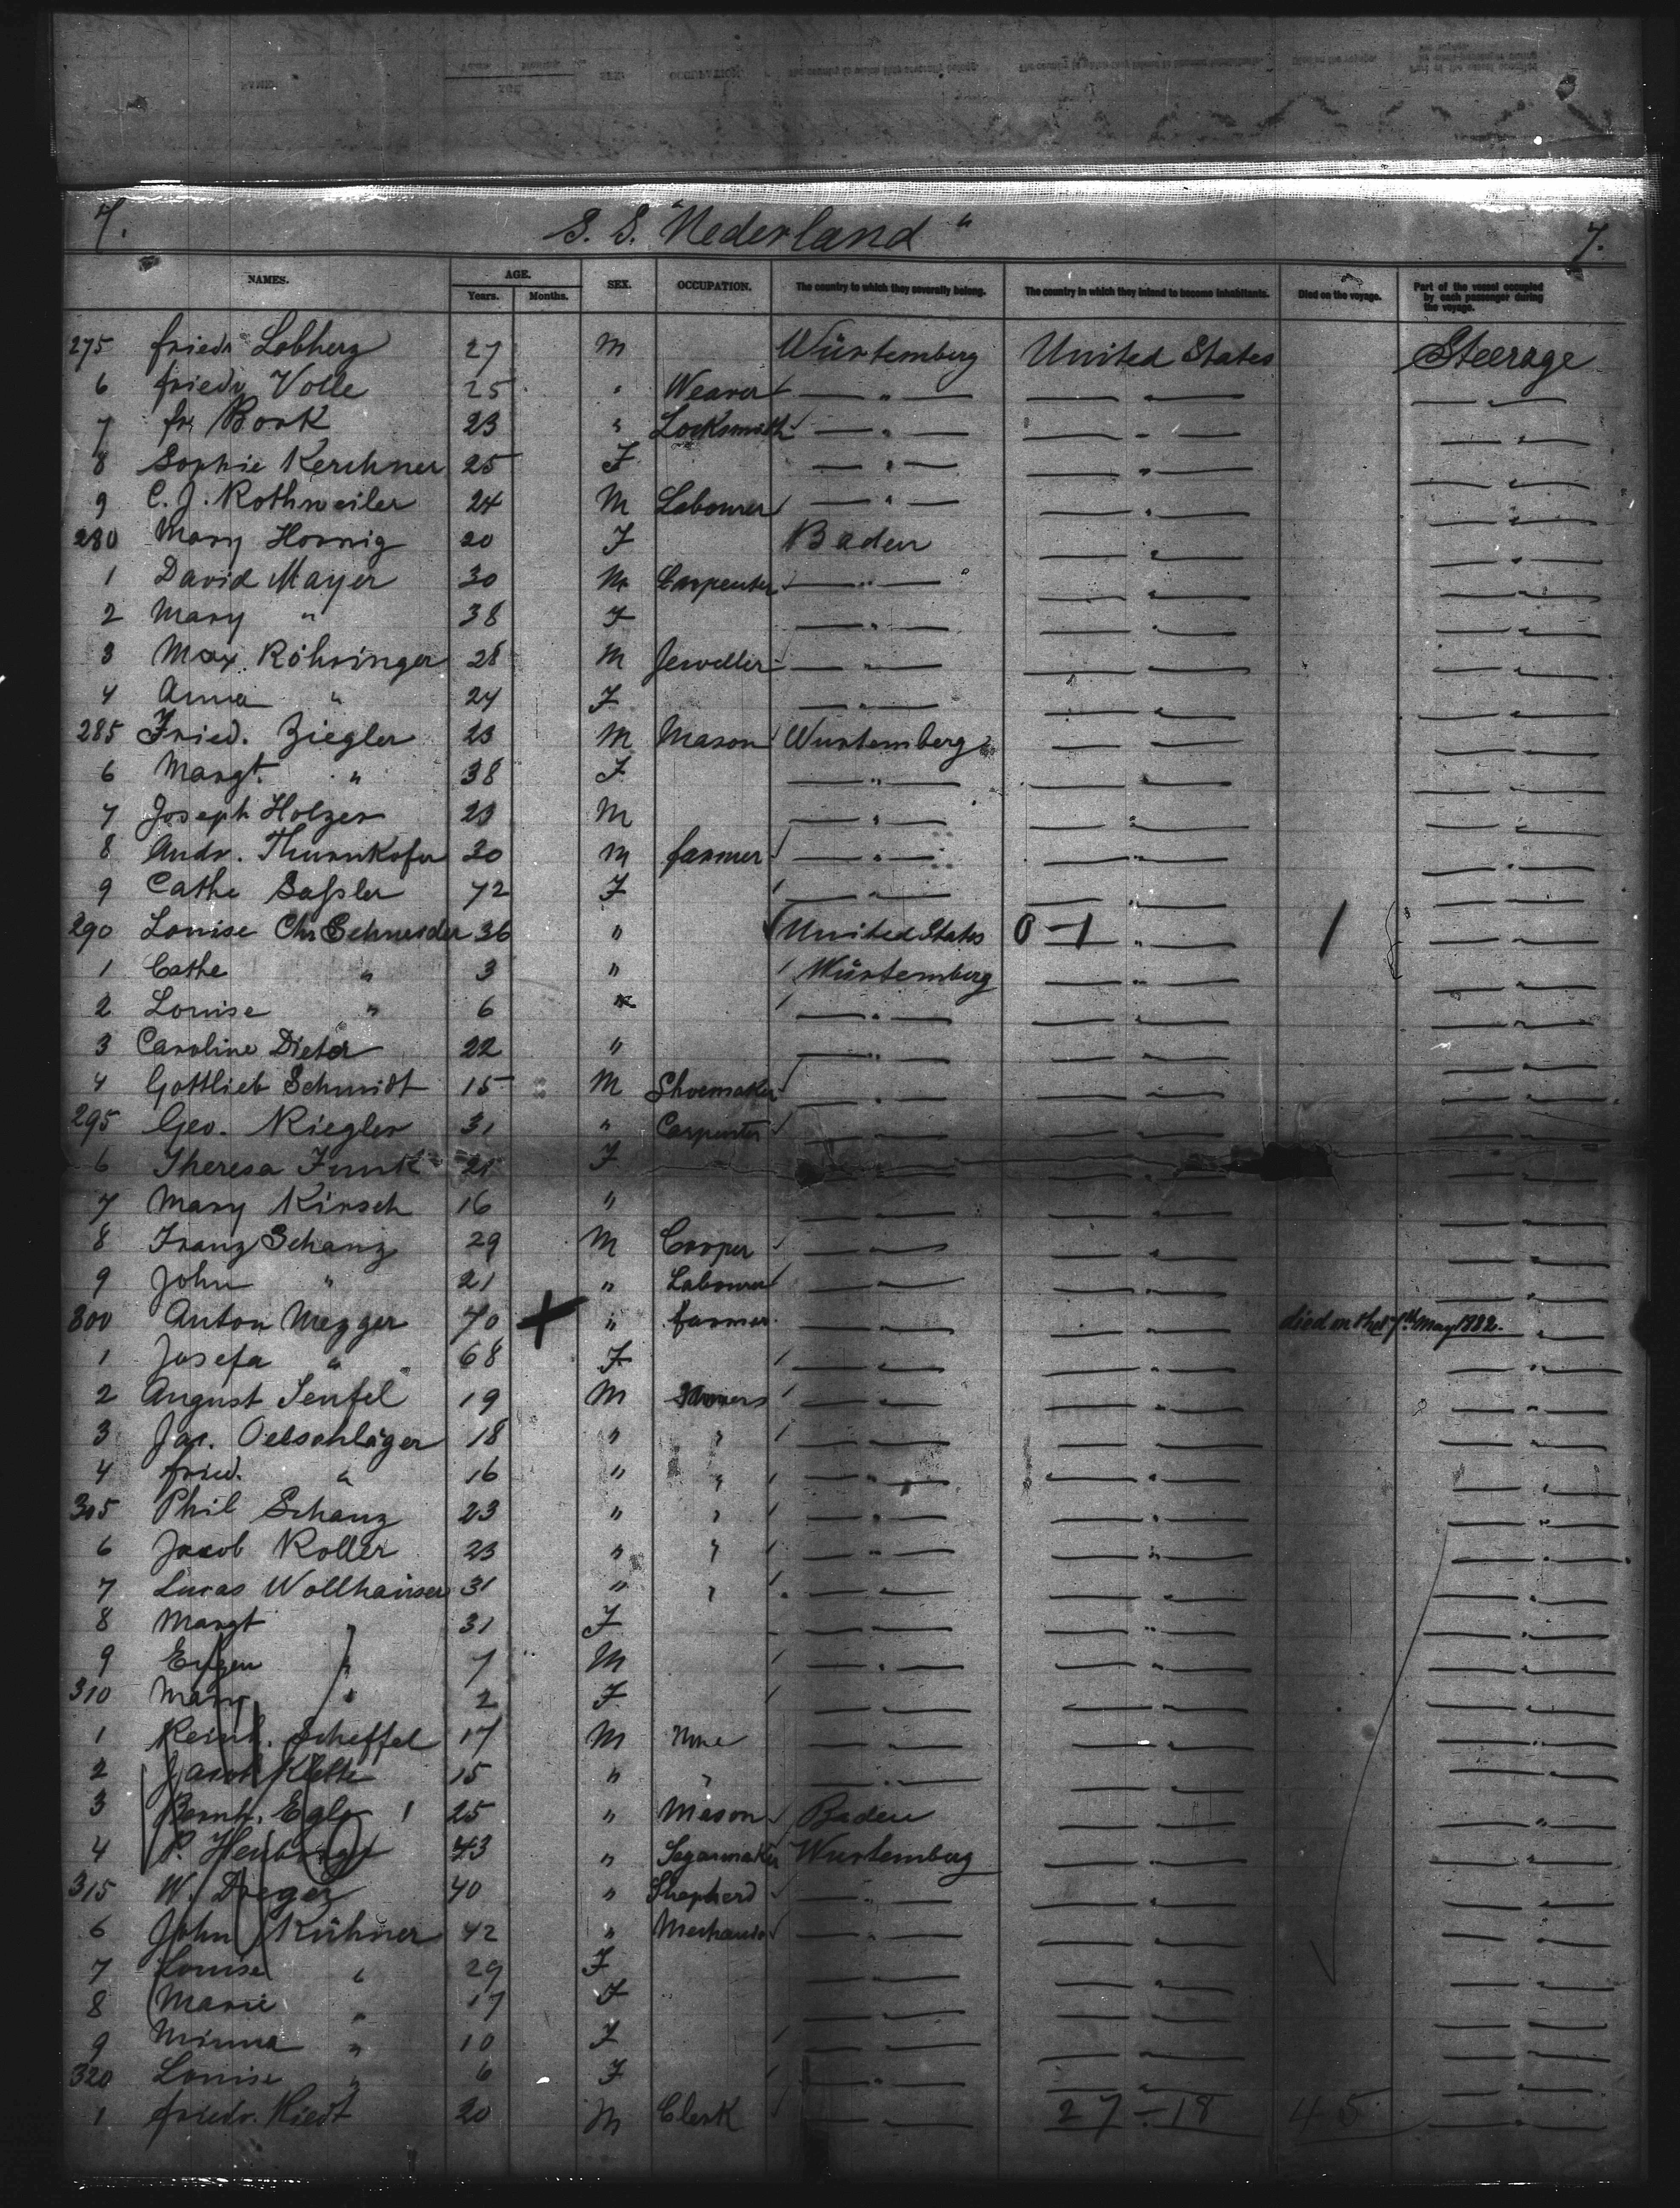 7. S. S. "Nederland" 7.
NAMES. AGE. Years. Months. SEX. OCCUPATION. The country to which they severally belong. The country in which they intend to become inhabitants. Died on the voyage. Part of the vessel occupied by each passenger during the voyage.
275 Friedr Lobherz 27 M Würtemberg United States Steerage
6 Friedr Volle 25 " Weaver — " — — " — — " —
7 Fr. Bork 23 " Locksmith — " — — " — — " —
8 Sophie Kerchner 25 F — " — — " — — " —
9 C. J. Rothweiler 24 M Labourer — " — — " — — " —
280 Mary Hornig 20 F Baden — " — — " —
1 David Mayer 30 M Carpenter — " — — " — — " —
2 Mary " 38 F — " — — " — — " —
3 Max Röhringer 28 M Jeweller — " — — " — — " —
4 Anna " 24 F — " — — " — — " —
285 Fried. Ziegler 23 M Mason Wurtemberg — " — — " —
6 Margt. " 38 F — " — — " — — " —
7 Joseph Holzer 23 M — " — — " — — " —
8 Andr. Thurnkofer 30 M farmer — " — — " — — " —
9 Cathe Saßler 72 F — " — — " — — " —
290 Louise Chr Schneider 36 " United States 0-1 — " — 1 — " —
1 Cathe " 3 " Würtemberg — " — — " —
2 Louise " 6 — " — — " — — " —
3 Caroline Dieter 22 " — " — — " — — " —
4 Gottlieb Schmidt 15 M Shoemaker — " — — " — — " —
295 Geo. Riegler 31 " Carpenter — " — — " — — " —
6 Theresa Funk 21 F — " — — " — — " —
7 Mary Kirsch 16 " — " — — " — — " —
8 Franz Schanz 29 M Cooper — " — — " — — " —
9 John " 21 " Labourer — " — — " — — " —
300 Anton Mezger 70 + " farmer — " — — " — died on the 7th May 1882. — " —
1 Josefa " 68 F — " — — " — — " —
2 August Seufel 19 M — " — — " — — " —
3 Jac. Oelschläger 18 " " — " — — " — — " —
4 Fried. " 16 " " — " — — " — — " —
305 Phil Schanz 23 " " — " — — " — — " —
6 Jacob Roller 23 " " — " — — " — — " —
7 Lucas Wollhauser 31 " " — " — — " — — " —
8 Margt " 31 F — " — — " — — " —
9 Eugen " 7 M — " — — " — — " —
310 Mary " 2 F — " — — " — — " —
1 Reinh. Scheffel 17 M None — " — — " — — " —
2 Jacob 15 " " — " — — " — — " —
3 Bernh. Egle 25 " Mason Baden — " — — " —
4 P. 43 " Segarmaker Wurtemberg — " — — " —
315 W. 40 " Shepherd — " — — " — — " —
6 John Kühner 42 " Mechanic — " — — " — — " —
7 Louise " 29 F — " — — " — — " —
8 Marie " 17 F — " — — " — — " —
9 Minna " 10 F — " — — " — — " —
320 Louise " 6 F — " — — " — — " —
1 Friedr. Riedt 20 M Clerk — " — 27-18 45 — " —